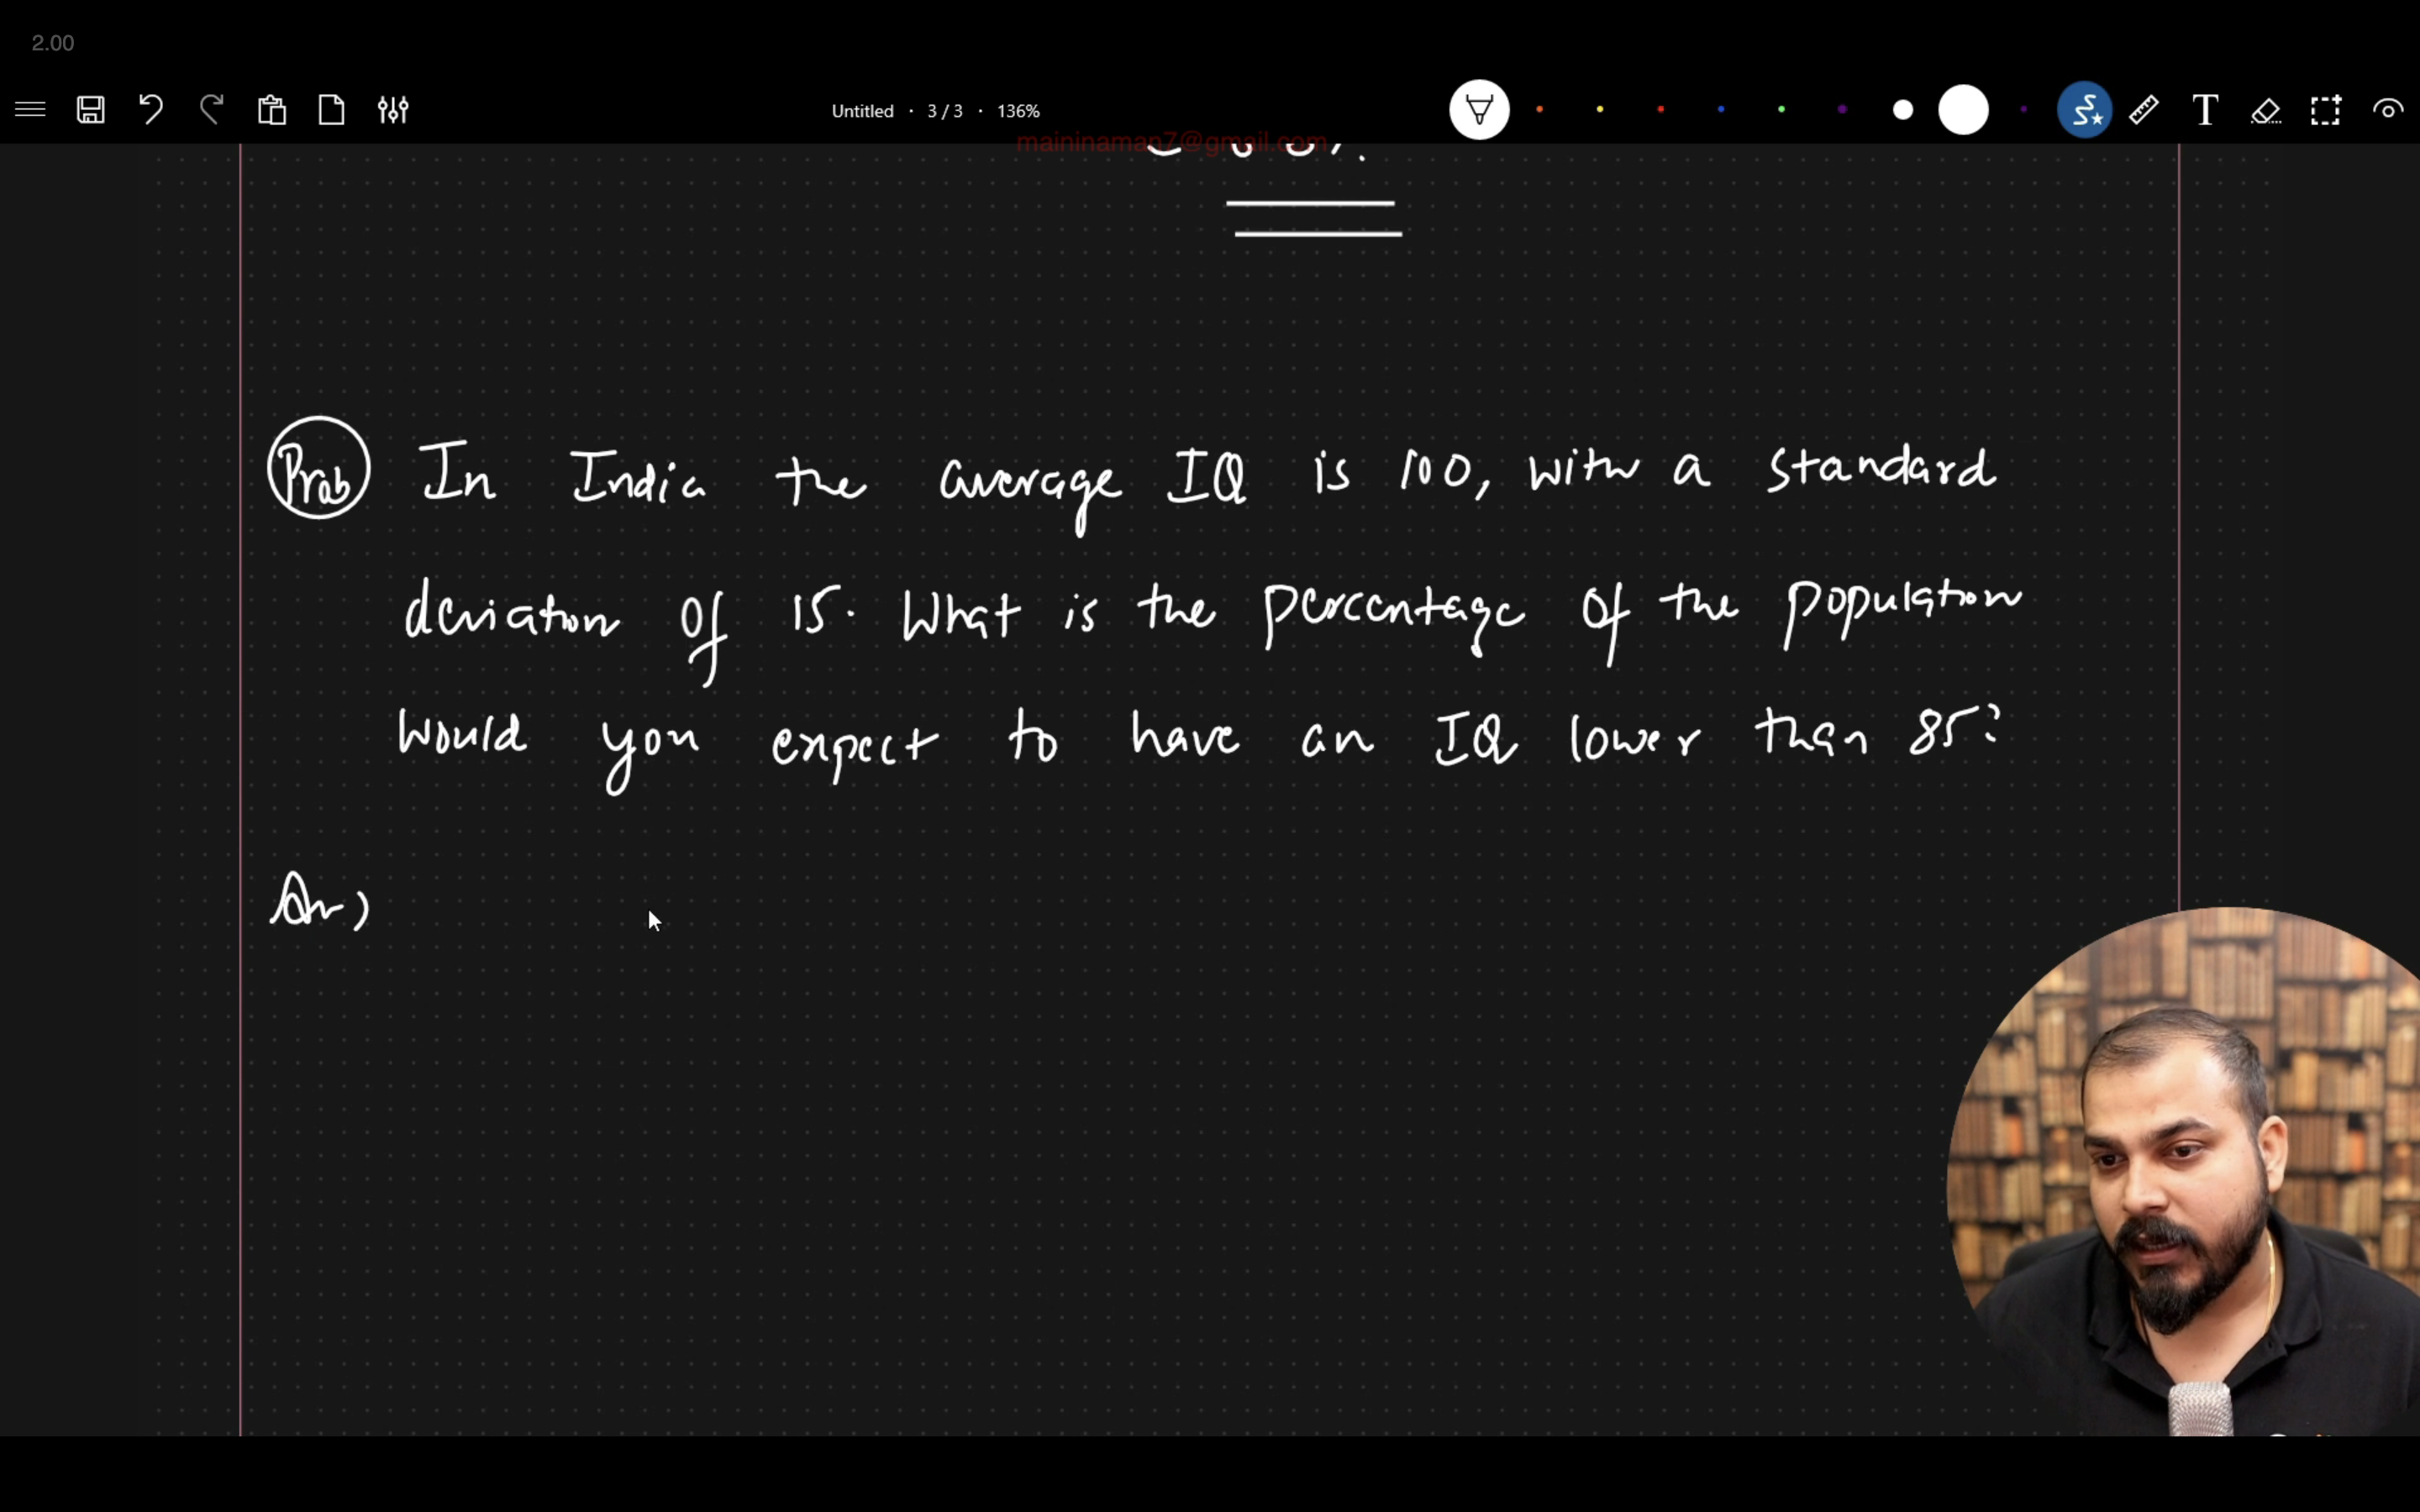 2.00
Untitled · 3 / 3 · 136%
maininaman7@gmail.com
Prob In India the average IQ is 100, with a standard
deviation of 15. What is the percentage of the population
would you expect to have an IQ lower than 85?
Ans)